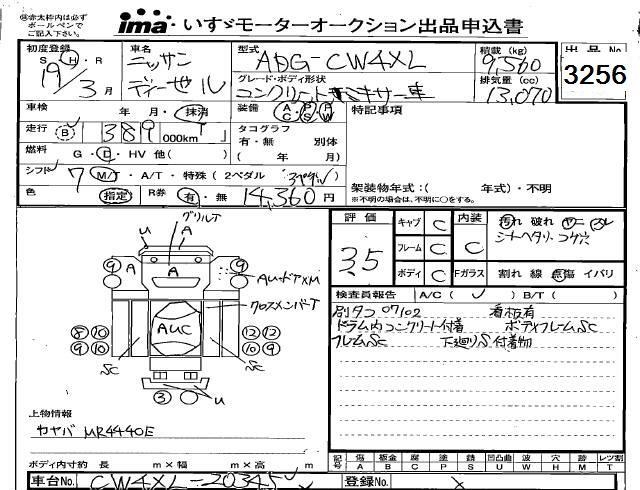 ㊟赤太枠内は必ず
ボールペンで
ご記入下さい。
ima いすゞモーターオークション出品申込書
初度登録
S・H・R
19/3月
車名
ニッサン
ディーゼル
型式
ADG-CW4XL
グレード・ボディ形状
コンクリートミキサー車
積載 (kg)
9,560
排気量 (cc)
13,070
出品No
3256
車検
年 月・抹消
装備
AC PS PW
特記事項
走行
B 1389 000km
タコグラフ
有・無 別体
( 年 月)
燃料 G・D・HV 他( )
シフト 7 M/T・A/T・特殊(2ペダル 3ペダル)
色 指定 R券 有・無 14,360円
架装物年式:( 年式)・不明
※不明の場合は、不明に○をする。
評価
3.5
キャブ C
フレーム C
ボディ C
内装 C
Fガラス
汚れ 破れ ヤニ スレ
シートヘタリ・コゲ穴
割れ 線 点傷 イバリ
検査員報告 A/C( ✓ ) B/T( )
別タコ 07102 看板有
ドラム内コンクリート付着 ボディフレームSC
フレームSC 下廻りS 付着物
グリルT
U A
A
A
9 9
AUードアXM
クロスメンバーT
AUC
8 10 12 12
9 10 10 9
SC SC
3 U
上物情報
カヤバ MR4440E
ボディ内寸約 長 m×幅 m×高 m
記号 傷A 板金B 腐C 補P 塗S 錆 凹凸曲U 波W 穴H 跡M 損T レツ割
車台No. CW4XL-20345
登録No. ×